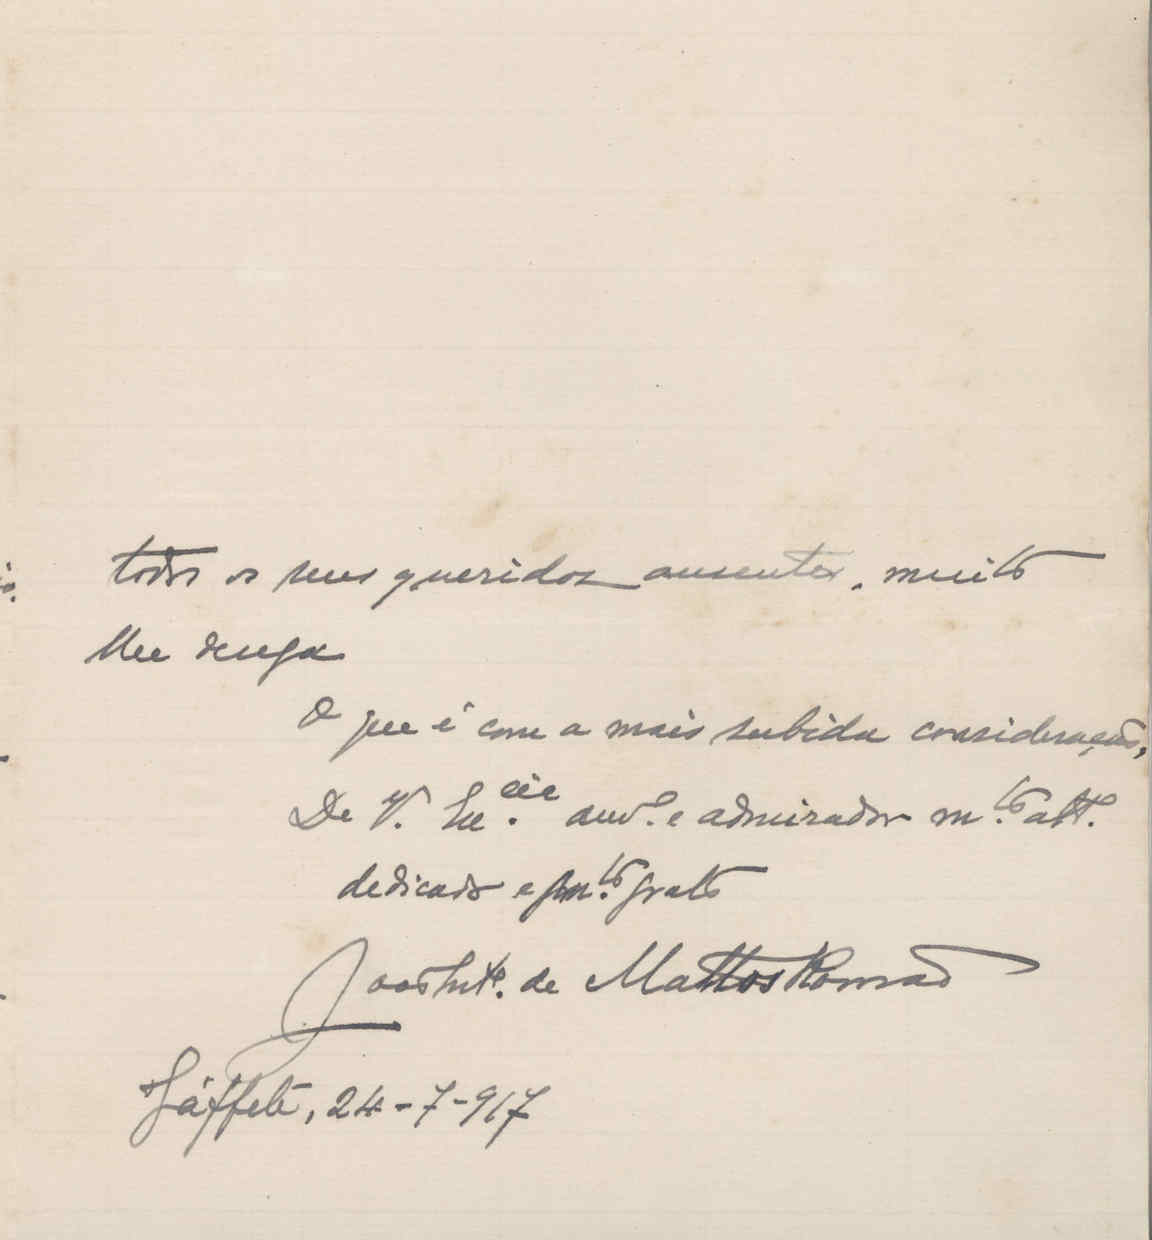 todos os seus queridos ausentes, muito
lhe deseja
O que é com a mais subida consideração,
De V. Ex.cia am.o e admirador m.to att.
dedicado e m.to grato
João Ant.o de Mattos Romão
Jáffete, 24-7-917